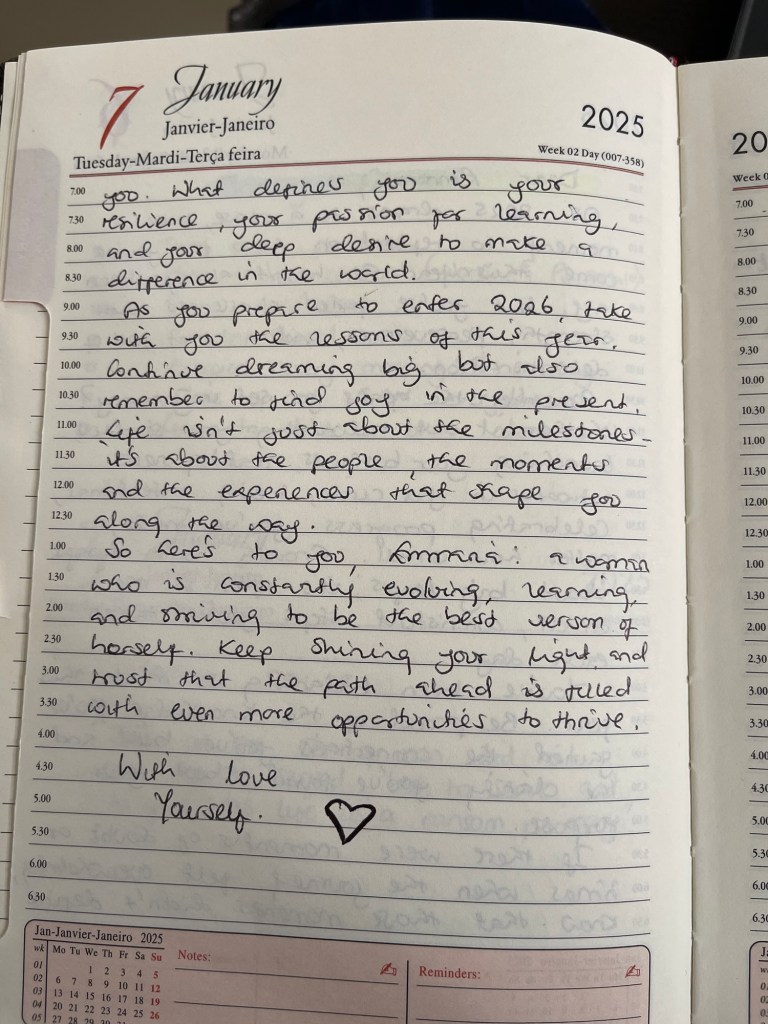 7 January
Janvier-Janeiro
2025
Tuesday-Mardi-Terça feira
Week 02 Day (007-358)
7.00 you. What defines you is your
7.30 resilience, your passion for learning,
8.00 and your deep desire to make a
8.30 difference in the world.
9.00 As you prepare to enter 2026, take
9.30 with you the lessons of this year.
10.00 Continue dreaming big but also
10.30 remember to find joy in the present.
11.00 Life isn't just about the milestones-
11.30 it's about the people, the moments
12.00 and the experiences that shape you
12.30 along the way.
1.00 So here's to you, : a woman
1.30 who is constantly evolving, learning,
2.00 and striving to be the best version of
2.30 herself. Keep shining your light and
3.00 trust that the path ahead is filled
3.30 with even more opportunities to thrive.
4.00
4.30 With love
5.00 Yourself. ♡
5.30
6.00
6.30
Jan-Janvier-Janeiro 2025
wk Mo Tu We Th Fr Sa Su
01 1 2 3 4 5
02 6 7 8 9 10 11 12
03 13 14 15 16 17 18 19
04 20 21 22 23 24 25 26
05 27 28 29 30 31
Notes:
Reminders:
20
Week 0
7.00
7.30
8.00
8.30
9.00
9.30
10.00
10.30
11.00
11.30
12.00
12.30
1.00
1.30
2.00
2.30
3.00
3.30
4.00
4.30
5.00
5.30
6.00
6.30